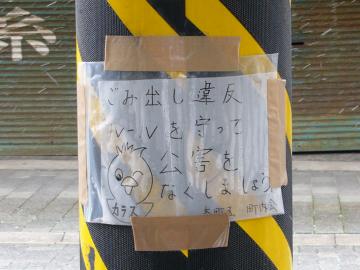 糸
ごみ出し違反
ルールを守って
公害を
なくしましょう
カラス
町内会